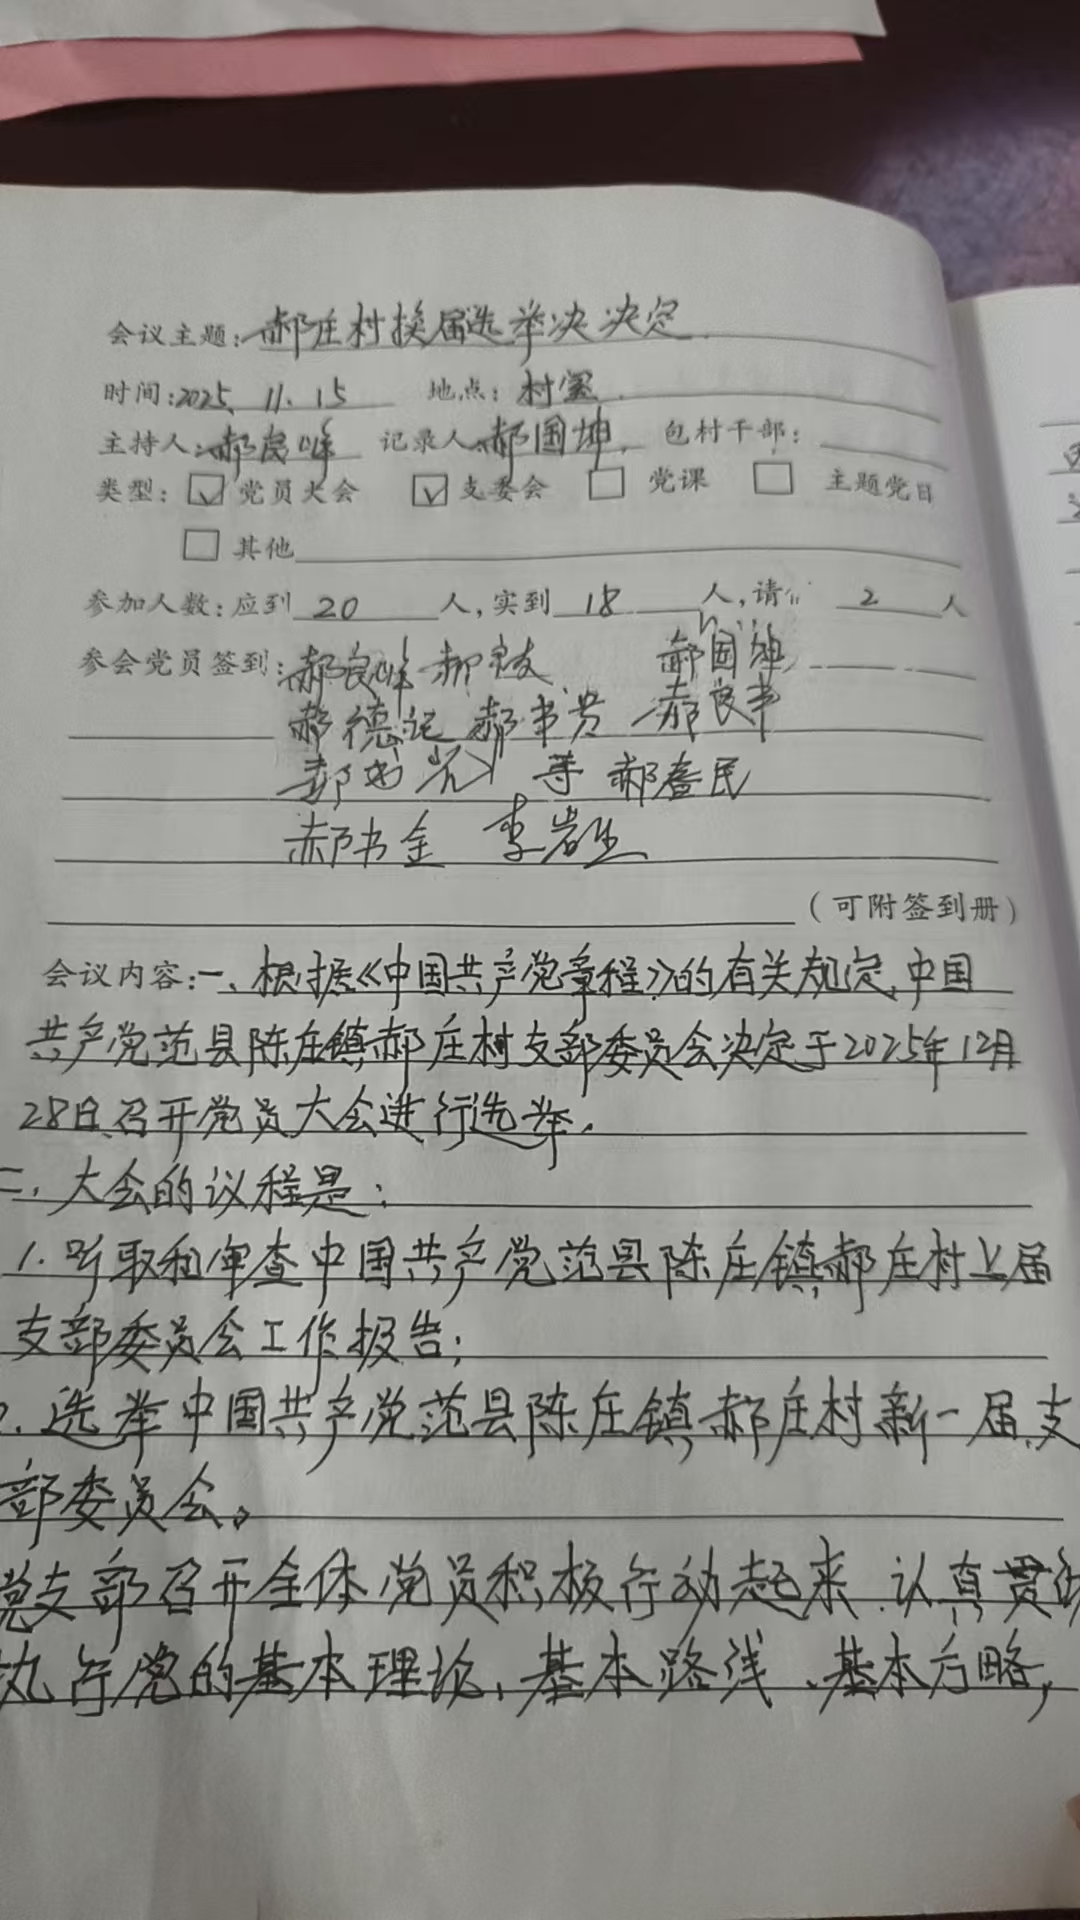 会议主题：郝庄村换届选举决决定
时间：2025.11.15 地点：村室
主持人：郝良峰 记录人 郝国坤 包村干部：
类型：☑党员大会 ☑支委会 □党课 □主题党日
□其他
参加人数：应到 20 人，实到 18 人，请 2 人
参会党员签到：郝良峰 郝国坤
郝德记 郝书贵 郝良
等 郝 民
郝书金 李岩生
（可附签到册）
会议内容：一、根据《中国共产党章程》的有关规定、中国
共产党范县陈庄镇郝庄村支部委员会决定于2025年12月
28日召开党员大会进行选举.
二、大会的议程是：
1.听取和审查中国共产党范县陈庄镇郝庄村上届
支部委员会工作报告；
2.选举中国共产党范县陈庄镇郝庄村新一届支
部委员会。
党支部召开全体党员积极行动起来.认真贯彻
执行党的基本理论、基本路线、基本方略，